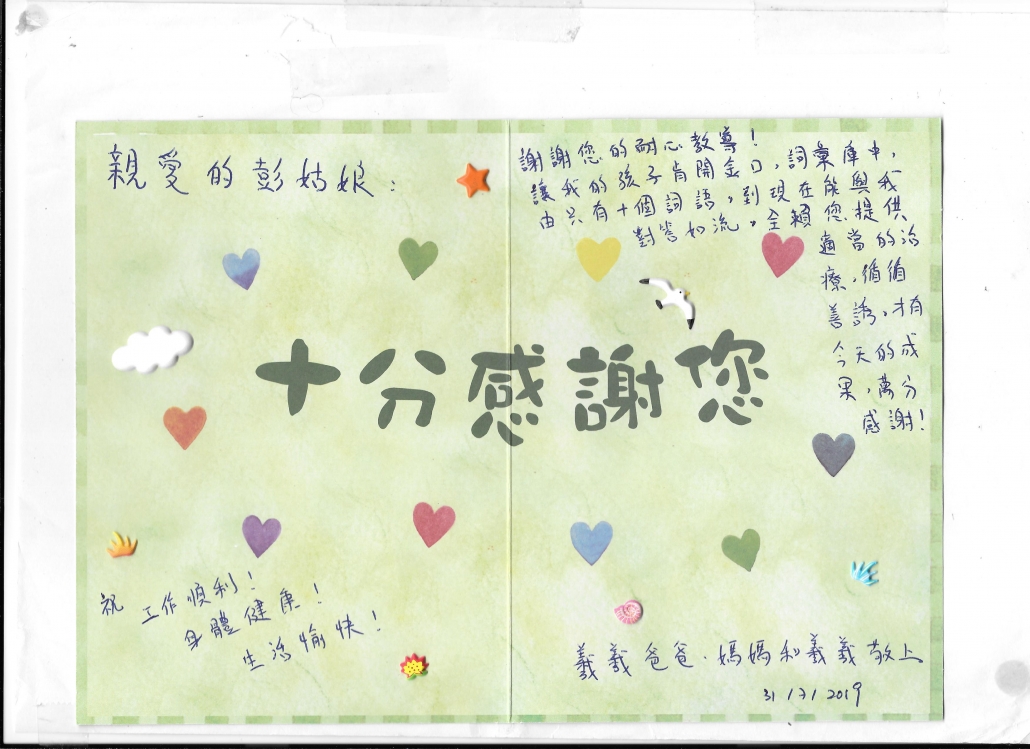 親愛的彭姑娘：
謝謝您的耐心教導！
讓我的孩子肯開金口，詞彙庫中，
由只有十個詞語，到現在能與我
對答如流，全賴您提供
適當的治
療，循循
善誘，才有
今天的成
果，萬分
感謝！
十分感謝您
祝 工作順利！
身體健康！
生活愉快！
羲羲爸爸、媽媽和羲羲敬上
31/7/2019